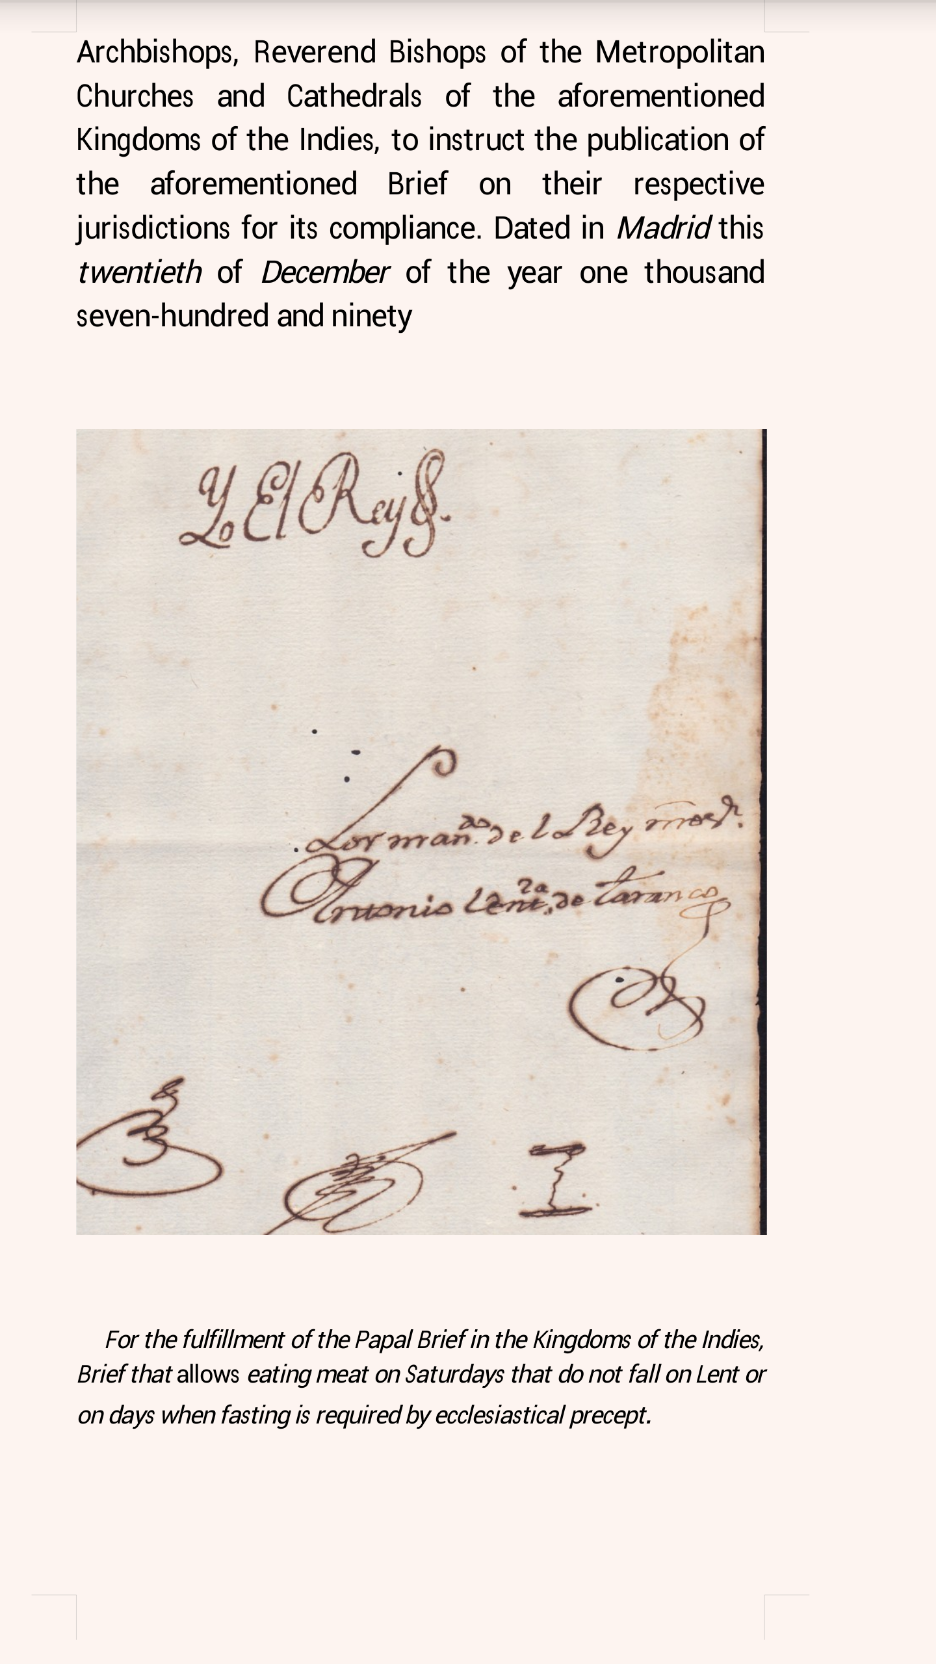 Archbishops, Reverend Bishops of the Metropolitan
Churches and Cathedrals of the aforementioned
Kingdoms of the Indies, to instruct the publication of
the aforementioned Brief on their respective
jurisdictions for its compliance. Dated in Madrid this
twentieth of December of the year one thousand
seven-hundred and ninety
Yo El Rey
Por man.do del Rey nro s.r
Antonio Vent.ra de Taranco
For the fulfillment of the Papal Brief in the Kingdoms of the Indies,
Brief that allows eating meat on Saturdays that do not fall on Lent or
on days when fasting is required by ecclesiastical precept.